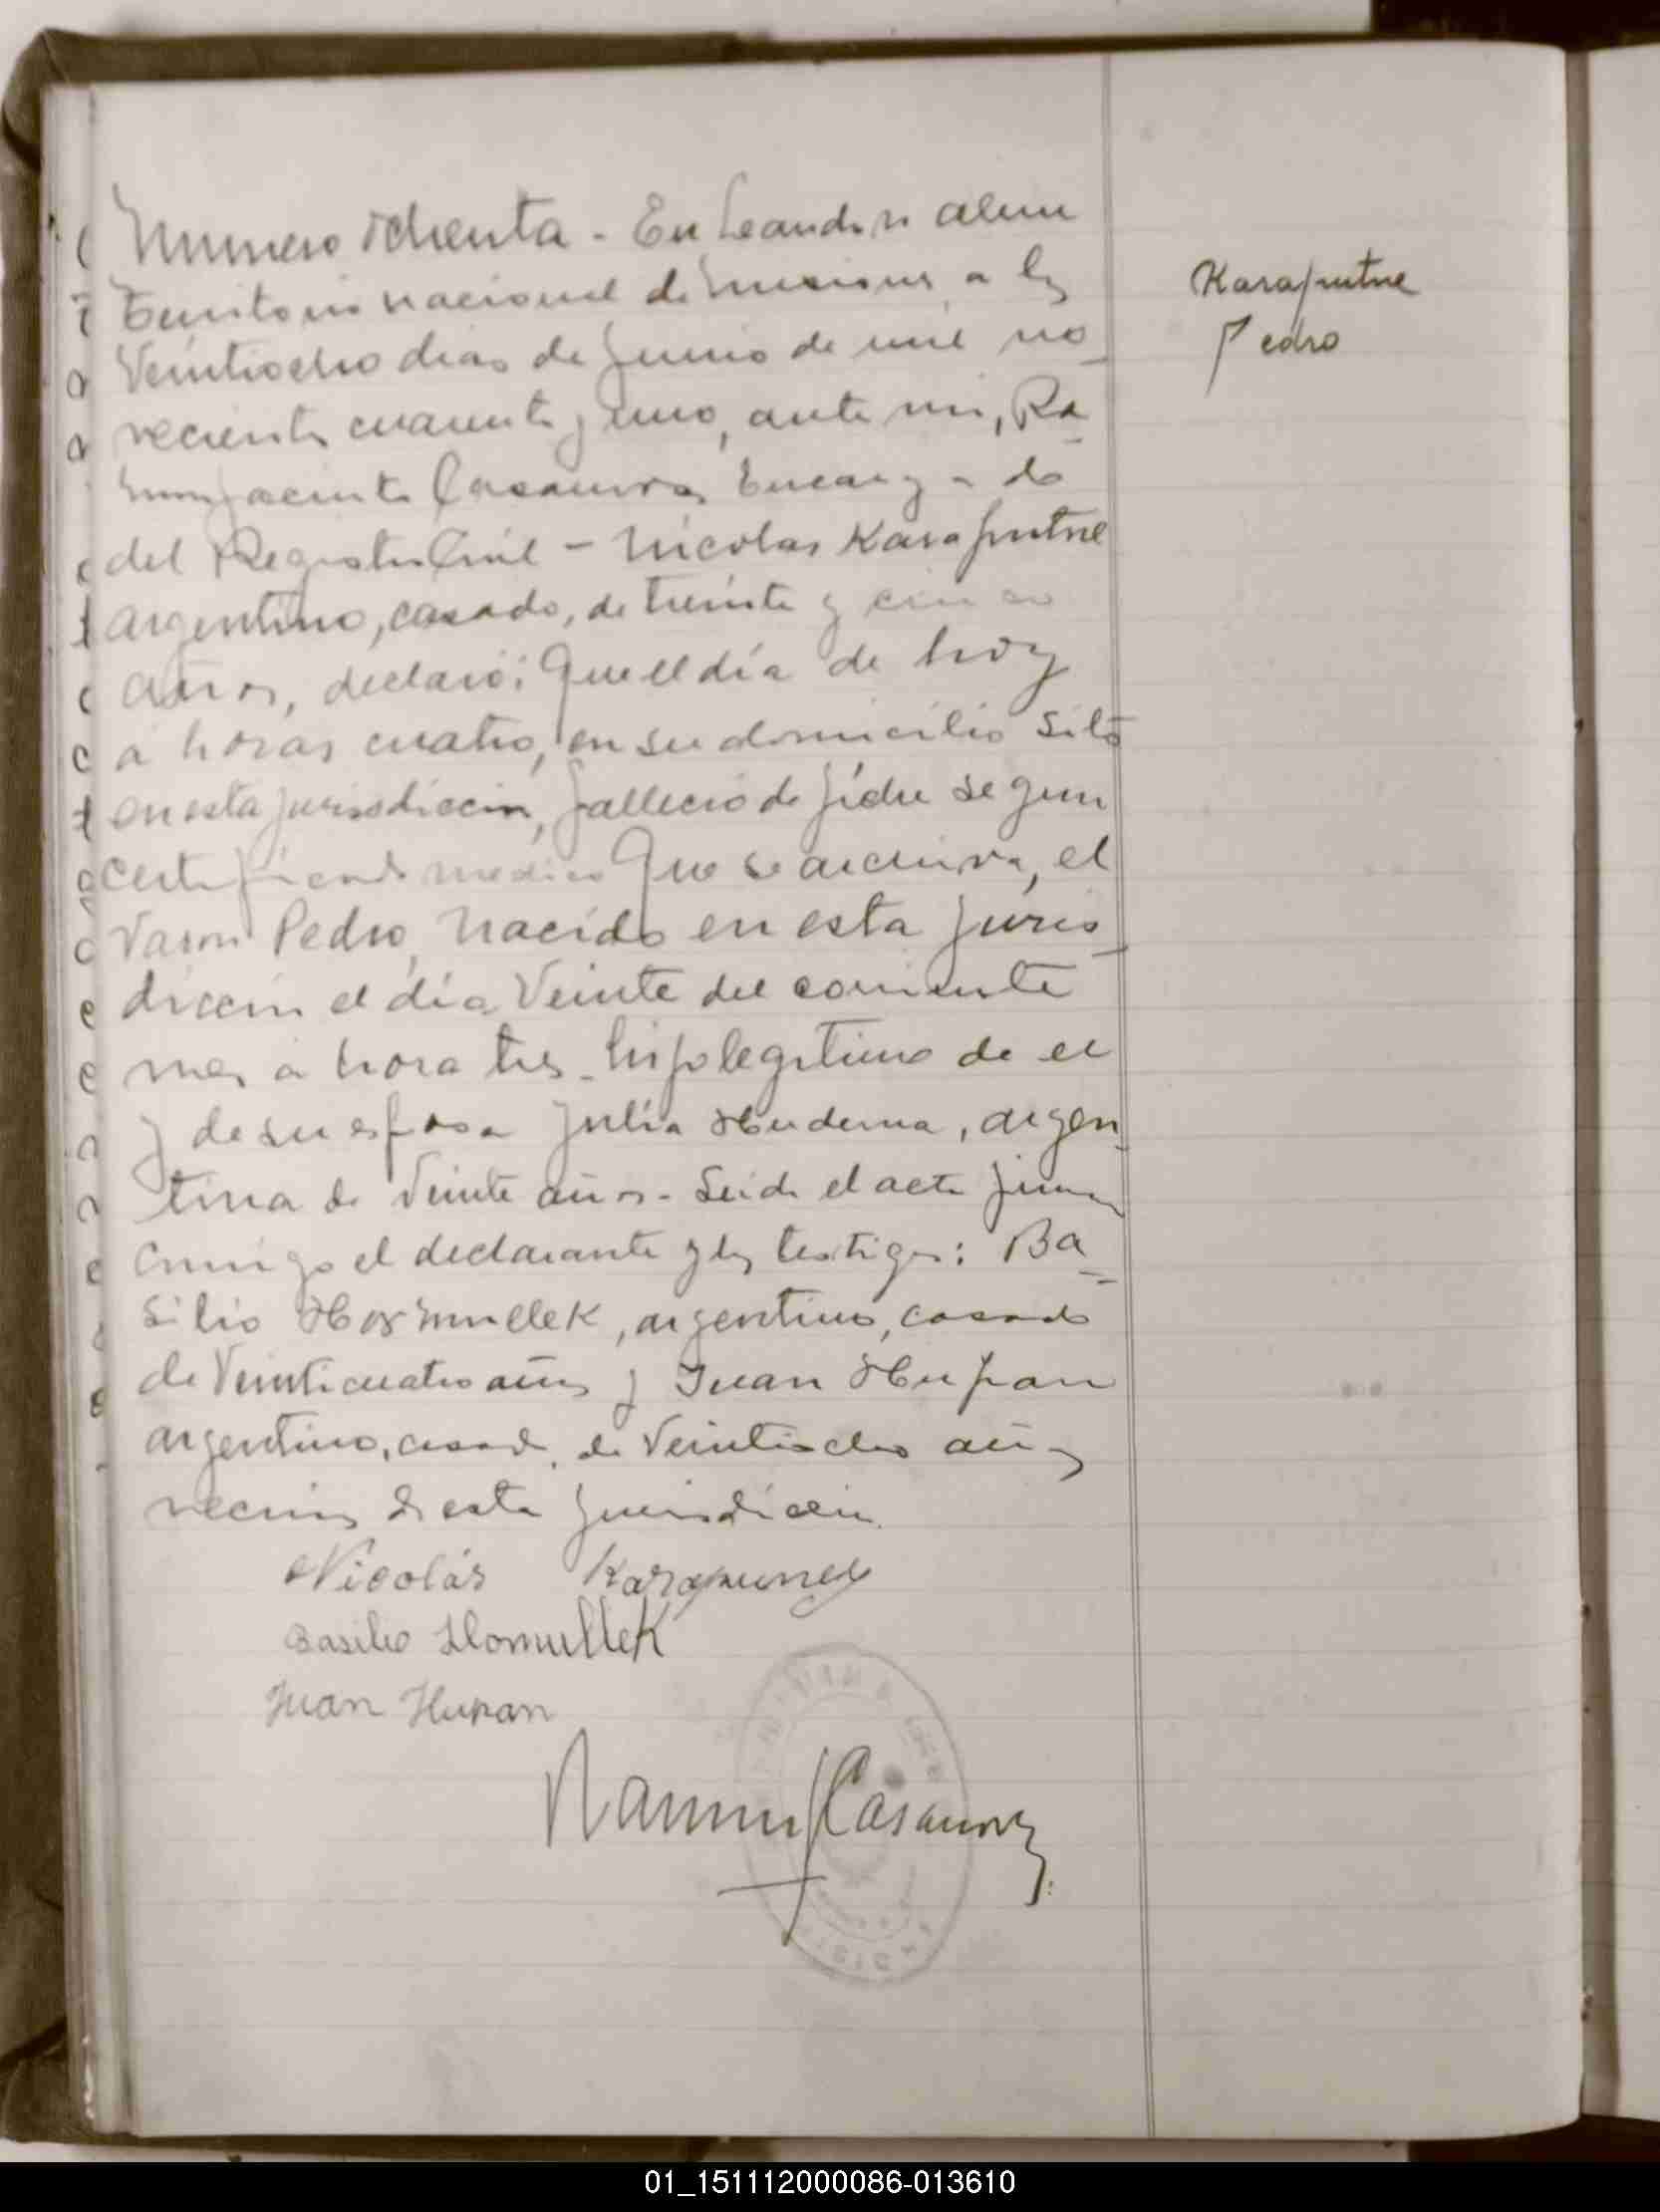 Numero Ochenta - En Leandro N Alem
Territorio nacional de Misiones, a los
Veintiocho dias de Junio de mil no-
vecientos cuarenta y uno, ante mi, Ra-
mon Jacinto Casanova, Encargado
del Registro Civil - Nicolas Karaputne
argentino, casado, de treinta y cinco
años, declaró: Que el día de hoy
a horas cuatro, en su domicilio sito
en esta jurisdiccion, fallecio de segun
certificado medico que se archiva, el
Varon Pedro, nacido en esta juris-
diccion el día Veinte del corriente
mes a hora tres - hijo legitimo de el
y de su esposa Julia Huderna, argen-
tina de Veinte años - Leida el acta firman
conmigo el declarante y los testigos: Ba-
silio Hormullek, argentino, casado
de Veinticuatro años y Juan Hupan
argentino, casado, de Veintiocho años
vecinos de esta jurisdiccion.
Karaputne
Pedro
Nicolás
Basilio HomulleK
Juan Hupan
Ramon J Casanova
01_151112000086-013610